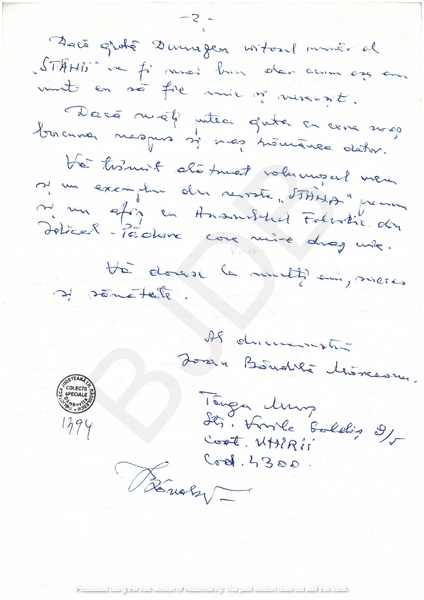 -2-
Dacă ajută Dumnezeu viitorul număr al
"STÂNII" va fi mai bun dar acum așa am
vrut eu să fie mic și
Dacă m-ați putea ajuta cu ceva m-aș
bucura nespus și v-aș rămânea dator.
Vă trimit alăturat volumașul meu
și un exemplar din revista "STÂNA" precum
și un afiș cu Ansamblul Folcloric din
Pădure care mi-e drag mie.
Vă doresc la mulți ani, succes
și sănătate.
Al dumneavoastră
Ioan Băndilă Mărceanu
Târgu Mureș
Str. Vasile Goldiș 9/5
Cart. UNIRII
Cod. 4300.
COLECȚII
SPECIALE
1394
BJDB